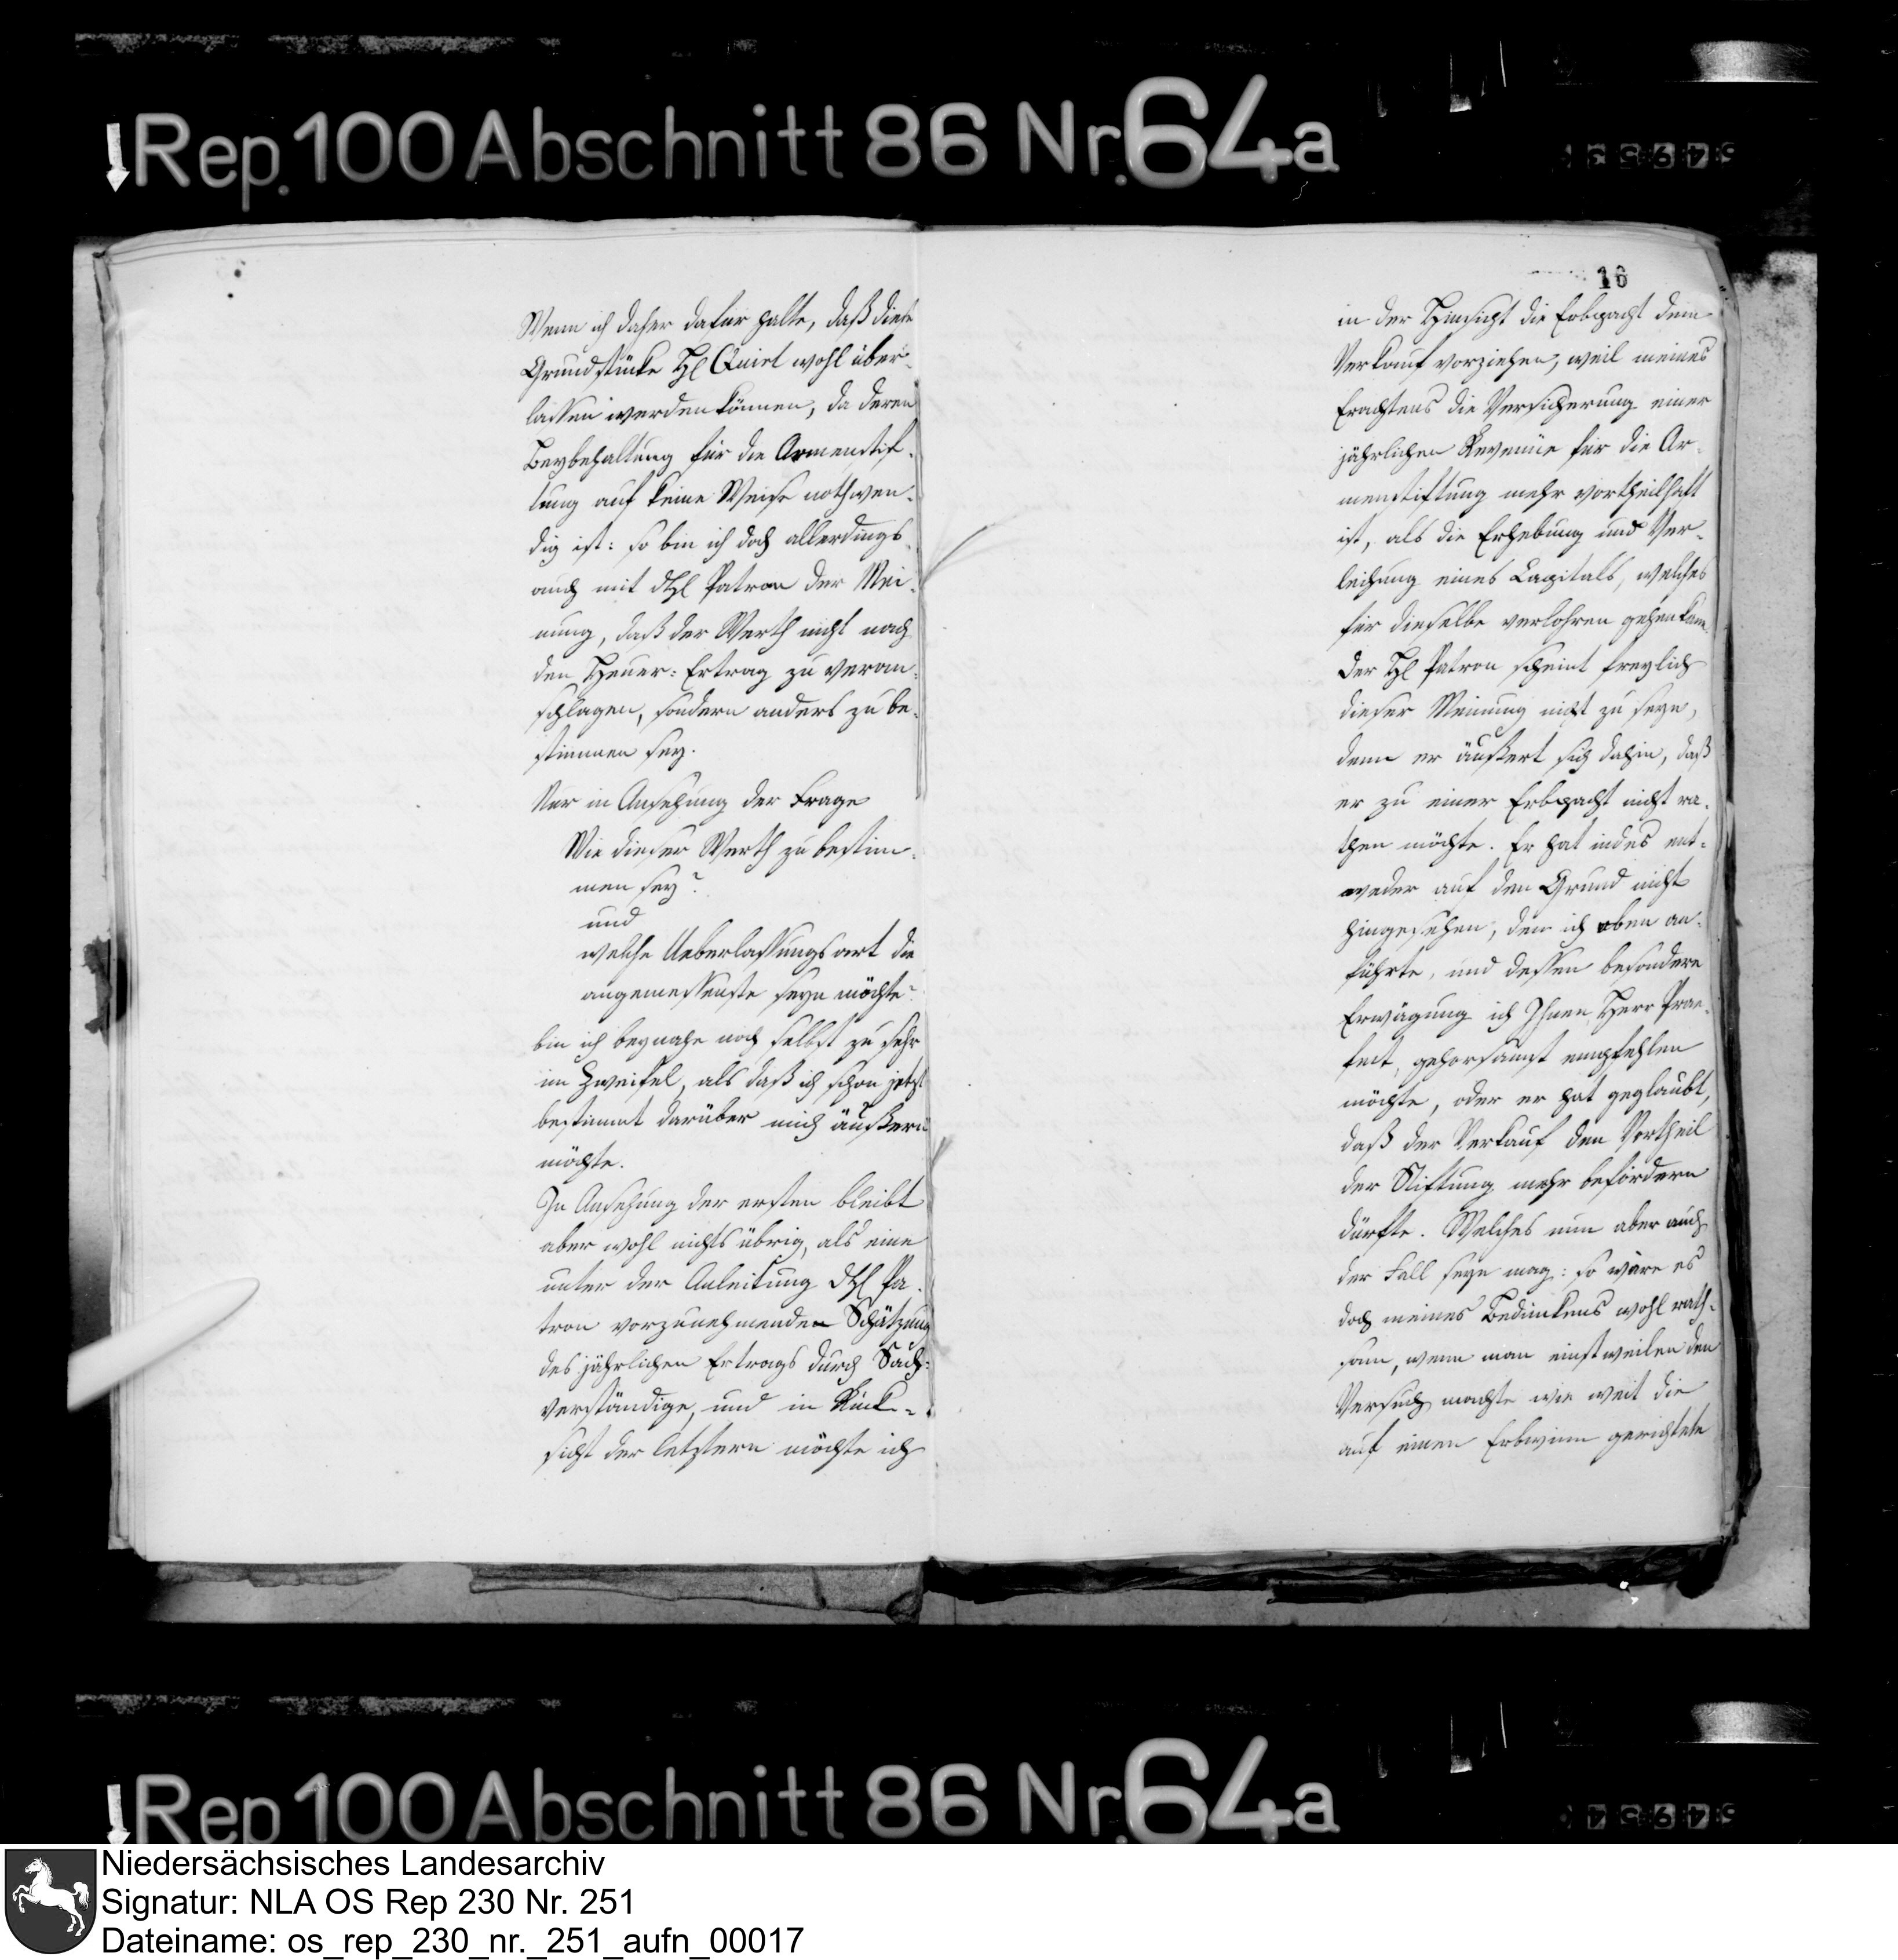 Rep. 100 Abschnitt 86 Nr. 64a
Wenn ich daher dafür halte, daß diese
Grundstücke H. Quirl wohl über-
lassen werden können, da deren
Beybehaltung für die Armenstif-
tung auf keine Weise nothwen-
dig ist: so bin ich doch allerdings
auch mit Patron der Mei-
nung, daß der Werth nicht nach
den Heuer-Ertrag zu veran-
schlagen, sondern anders zu be-
stimmen sey.
Nur in Ansehung der Frage
Wie dieser Werth zu bestim-
men sey?
und
welche Ueberlassungsart die
angemessenste seyn möchte?
bin ich beynahe noch selbst zu sehr
im Zweifel, als daß ich schon jetzt
bestimmt darüber mich äußern
möchte.
In Ansehung der ersten bleibt
aber wohl nichts übrig, als eine
unter der Anleitung Pa-
tron vorzunehmenden Schätzung
des jährlichen Ertrags durch Sach-
verständige, und in Rück-
sicht der letztern möchte ich
16
in der Hinsicht die Erbpacht dem
Verkauf vorziehen, weil meines
Erachtens die Versicherung einer
jährlichen Revenüe für die Ar-
menstiftung mehr vortheilhaft
ist, als die Erhebung und Ver-
leihung eines Capitals, welches
für dieselbe verlohren gehen kann.
Der H. Patron scheint freylich
dieser Meinung nicht zu seyn,
denn er äußert sich dahin, daß
er zu einer Erbpacht nicht ra-
then möchte. Er hat indes ent-
weder auf den Grund nicht
hingesehen, den ich oben an-
führte, und dessen besondere
Erwägung ich Ihnen, Herr Prae-
fect, gehorsamst empfehlen
möchte, oder er hat geglaubt,
daß der Verkauf den Vortheil
der Stiftung mehr befördern
dürfte. Welches nun aber auch
der Fall seyn mag: so wäre es
doch meines Bedünkens wohl rath-
sam, wenn man einstweilen den
Versuch machte wie weit die
auf einen Erbwinn gerichtete
Rep 100 Abschnitt 86 Nr. 64a
Niedersächsisches Landesarchiv
Signatur: NLA OS Rep 230 Nr. 251
Dateiname: os_rep_230_nr._251_aufn_00017